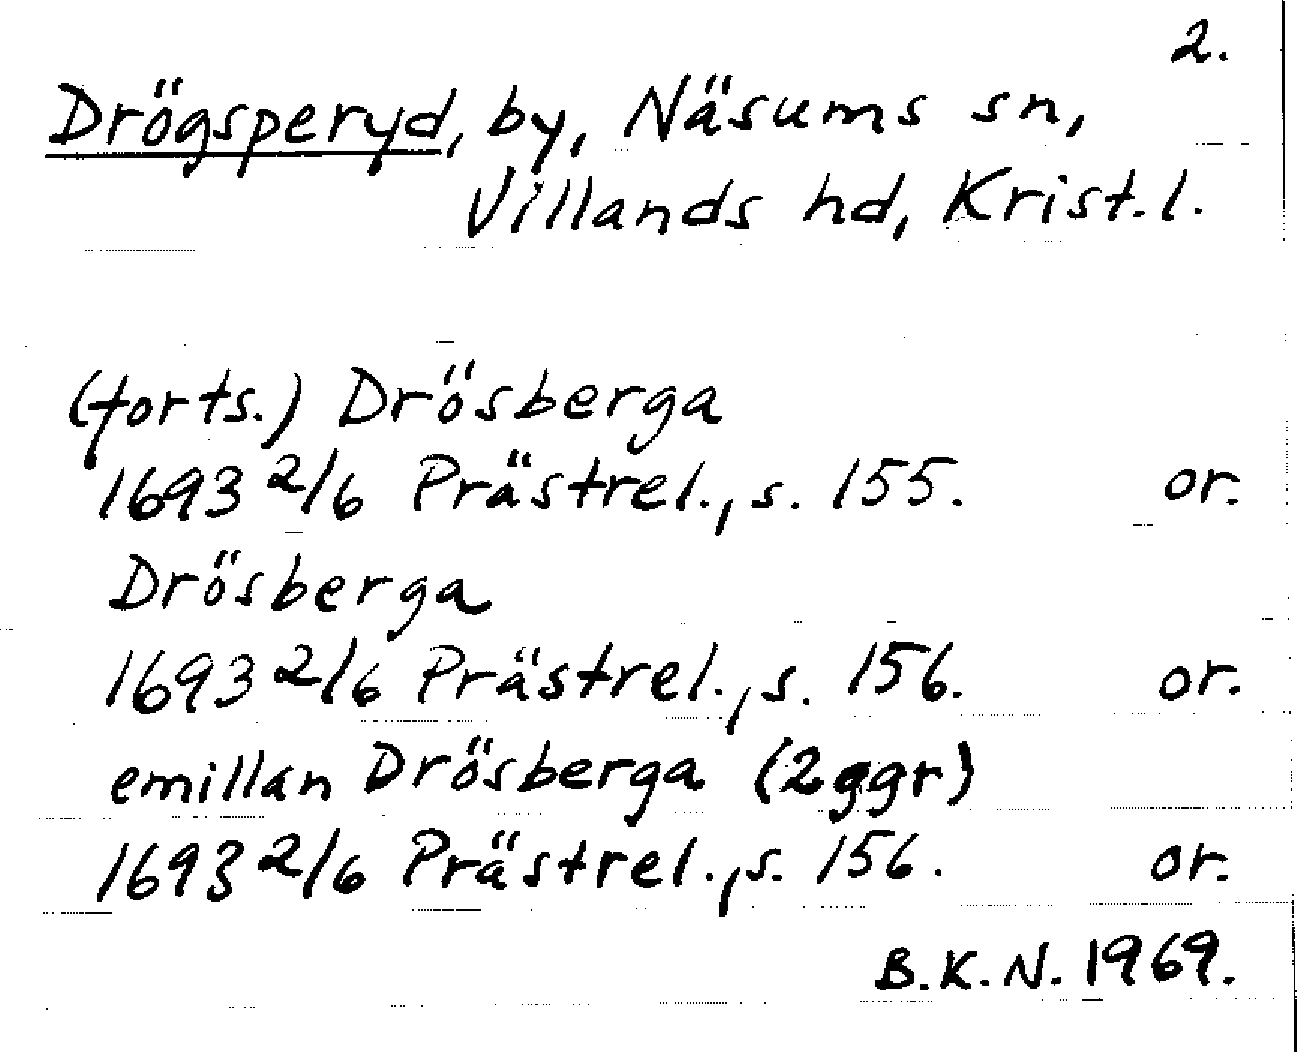 2.
Drögsperyd, by, Näsums sn,
Villands hd, Krist.l.
(forts.) Drösberga
1693 2/6 Prästrel., s. 155. or.
Drösberga
1693 2/6 Prästrel., s. 156. or.
emillan Drösberga (2ggr)
1693 2/6 Prästrel., s. 156. or.
B.K.N. 1969.